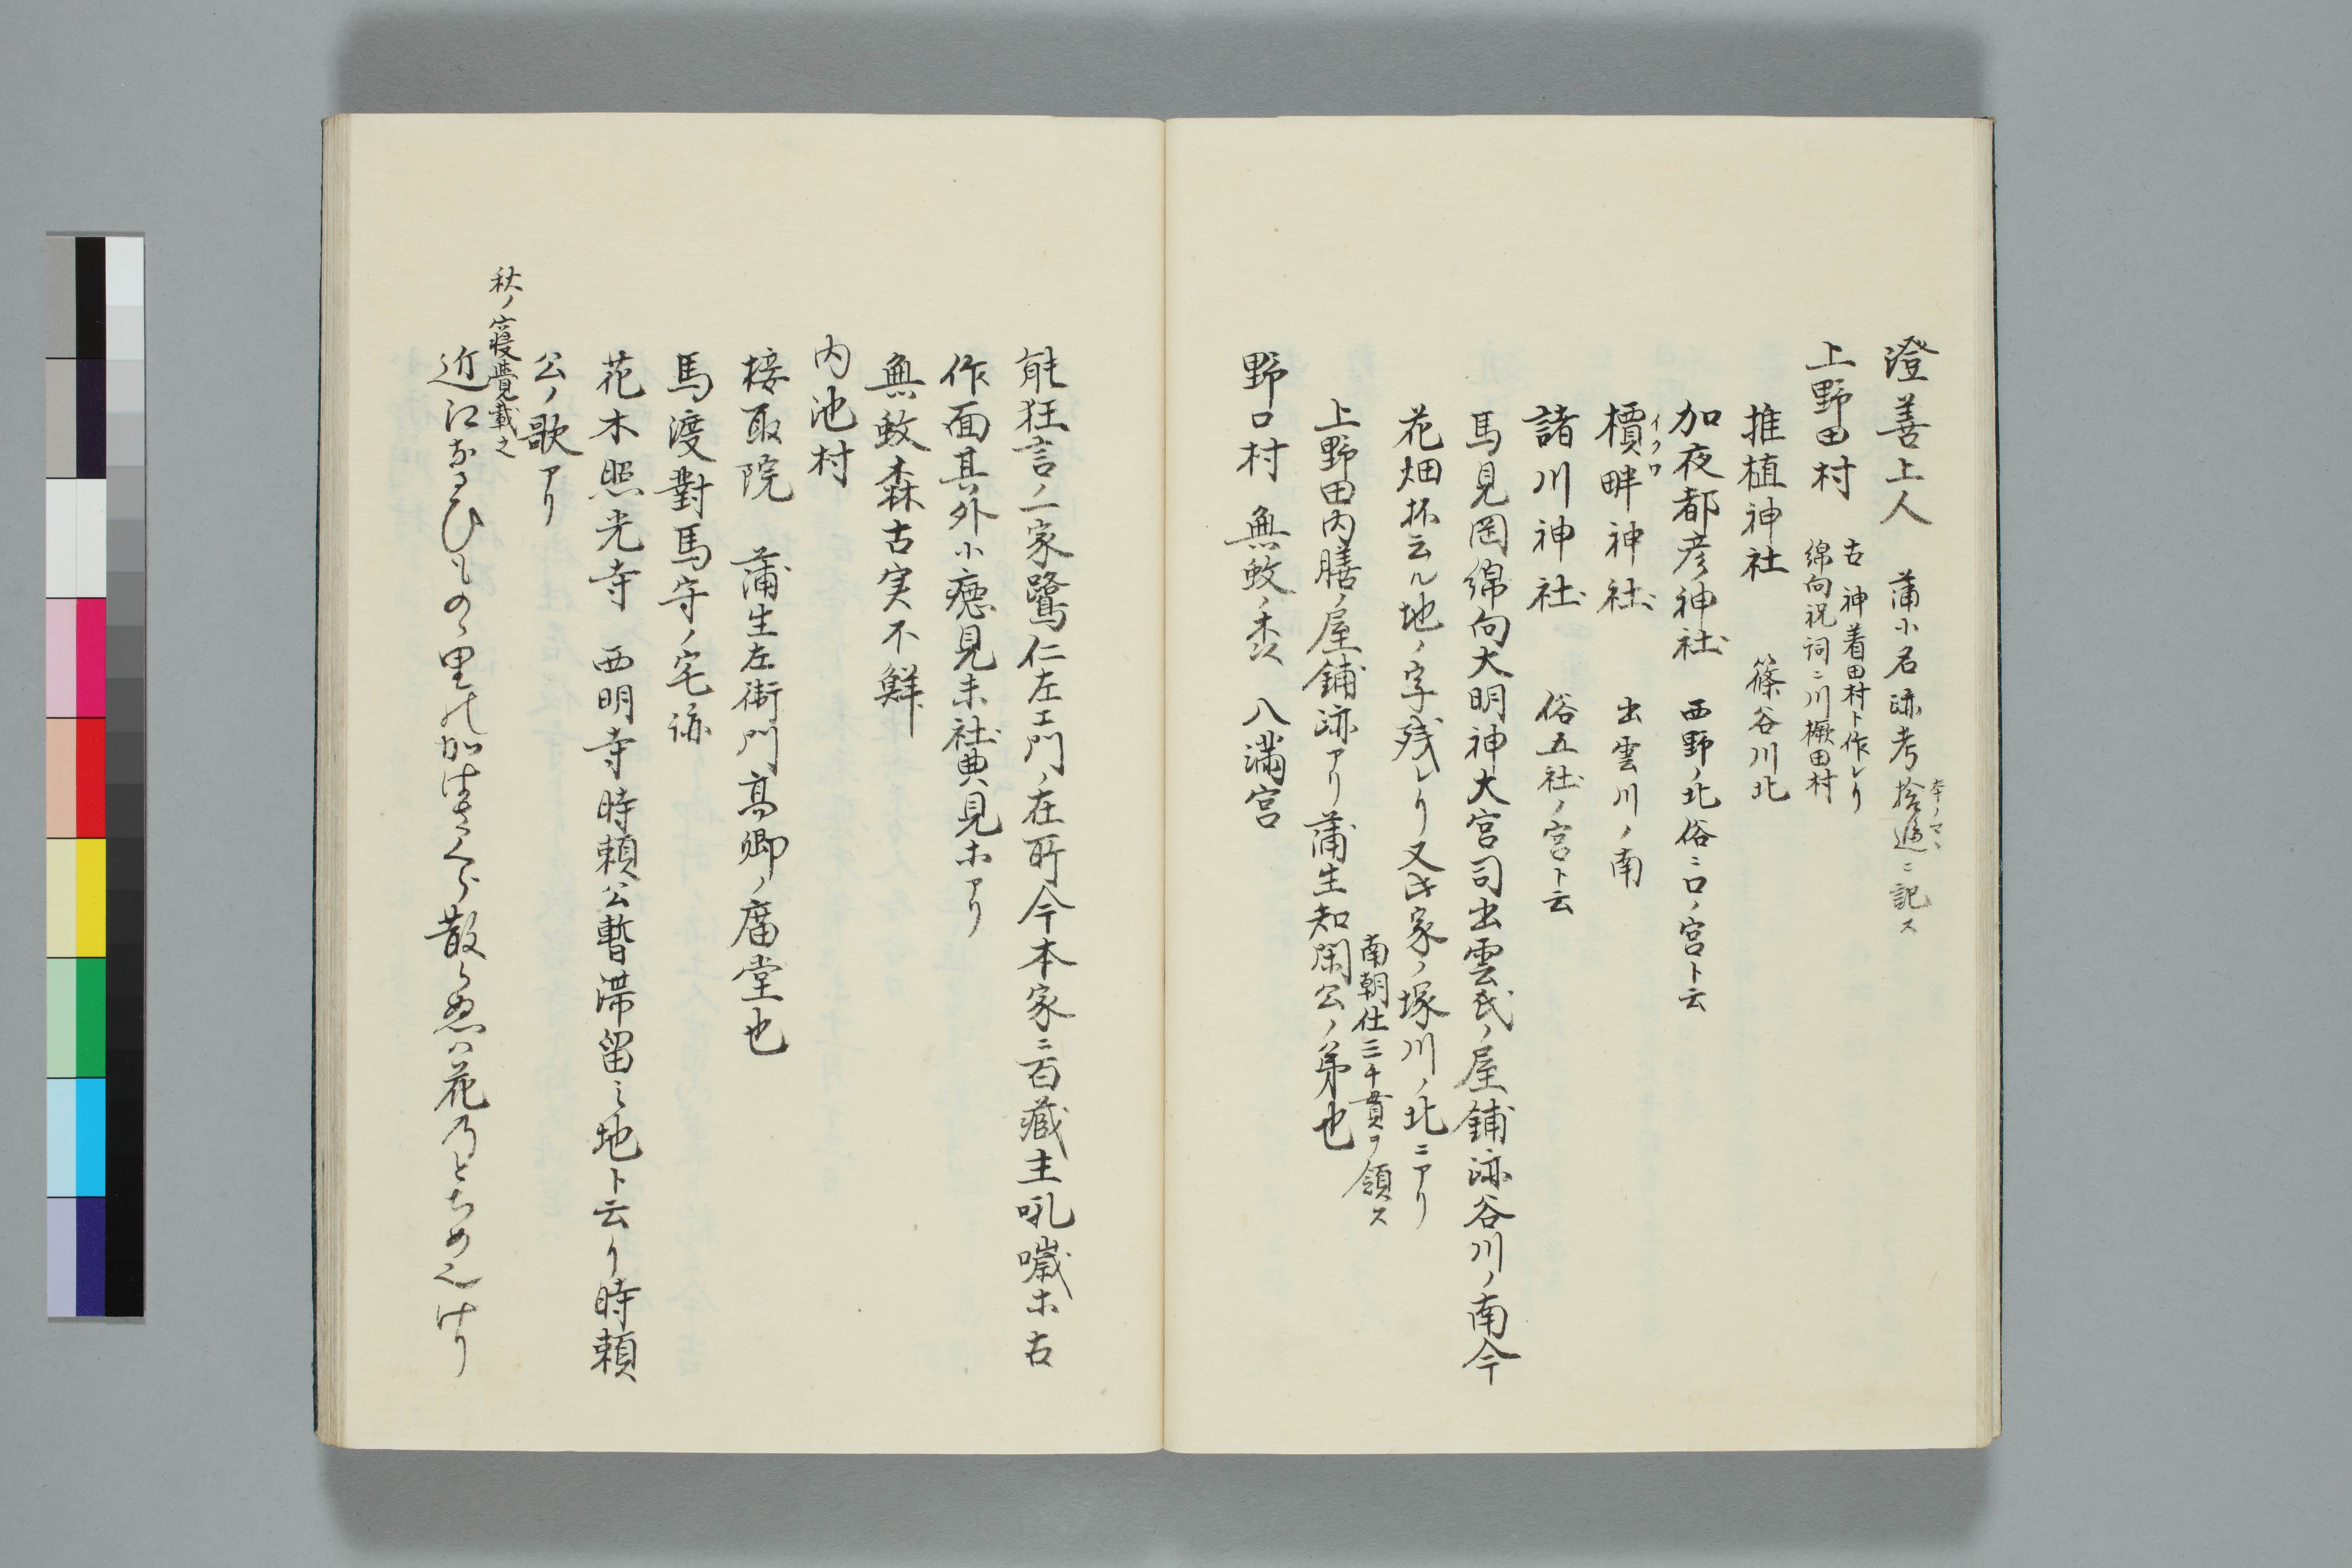 澄善上人　蒲小名跡考拾遺ニ記ス
本ノマヽ
上野田村
古神着田村ト作レリ
綿向祝詞ニ川橛田村
推植神社　篠谷川北
加夜都彦神社　西野ノ北俗ニ口ノ宮ト云
イクロ
樻畔神社　出雲川ノ南
諸川神社　俗五社ノ宮ト云
馬見罡綿向大明神大宮司出雲氏ノ屋鋪跡谷川ノ南今
花畑抔云ル地ノ字残レリ又此家ノ塚川ノ北ニアリ
南朝仕三千貫ヲ領ス
上野田内膳ノ屋鋪跡アリ蒲生知閑公ノ弟也
野口村　無蚊ノ森　八満宮
能狂言ノ一家鷺仁左エ門ノ在所今本家ニ百蔵主吼噦ホ古
作面其外小癋見末社黄見ホアリ
無蚊森古実不鮮
内池村
接取院　蒲生左衛門高郷ノ廟堂也
馬渡對馬守ノ宅跡
花木照光寺　西明寺時頼公暫滞留之地ト云リ時頼
公ノ歌アリ
秋ノ寝覺載之
近江なるひものゝ里の加はさくら散らぬハ花乃とちめなりけり